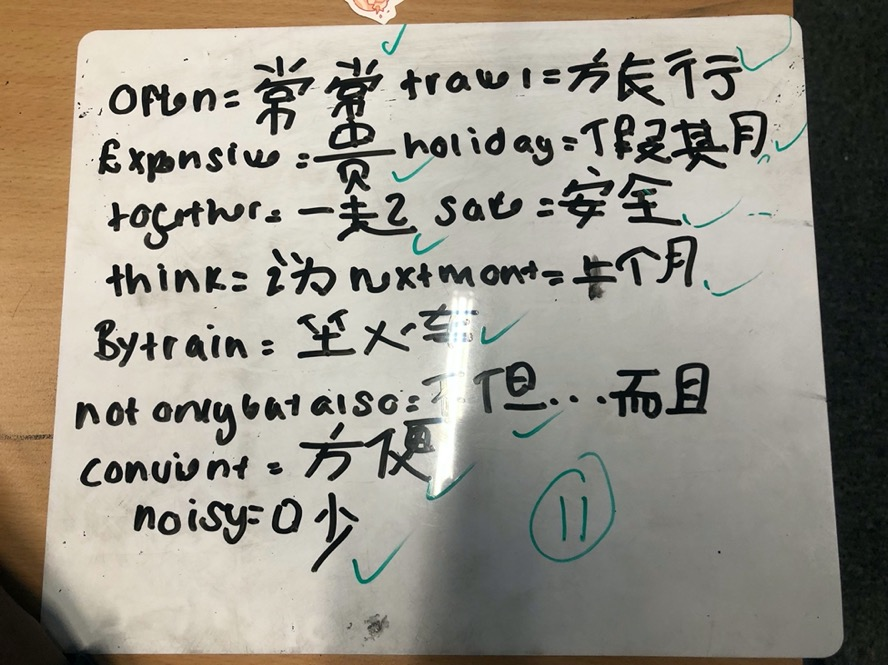 Often = 常常 travel = 旅行
Expensive = 贵 holiday = 假期
together = 一起 safe = 安全
think = 认为 next mont = 上个月
By train = 坐火车
not only but also = 不但...而且
convient = 方便
noisy = 吵
11